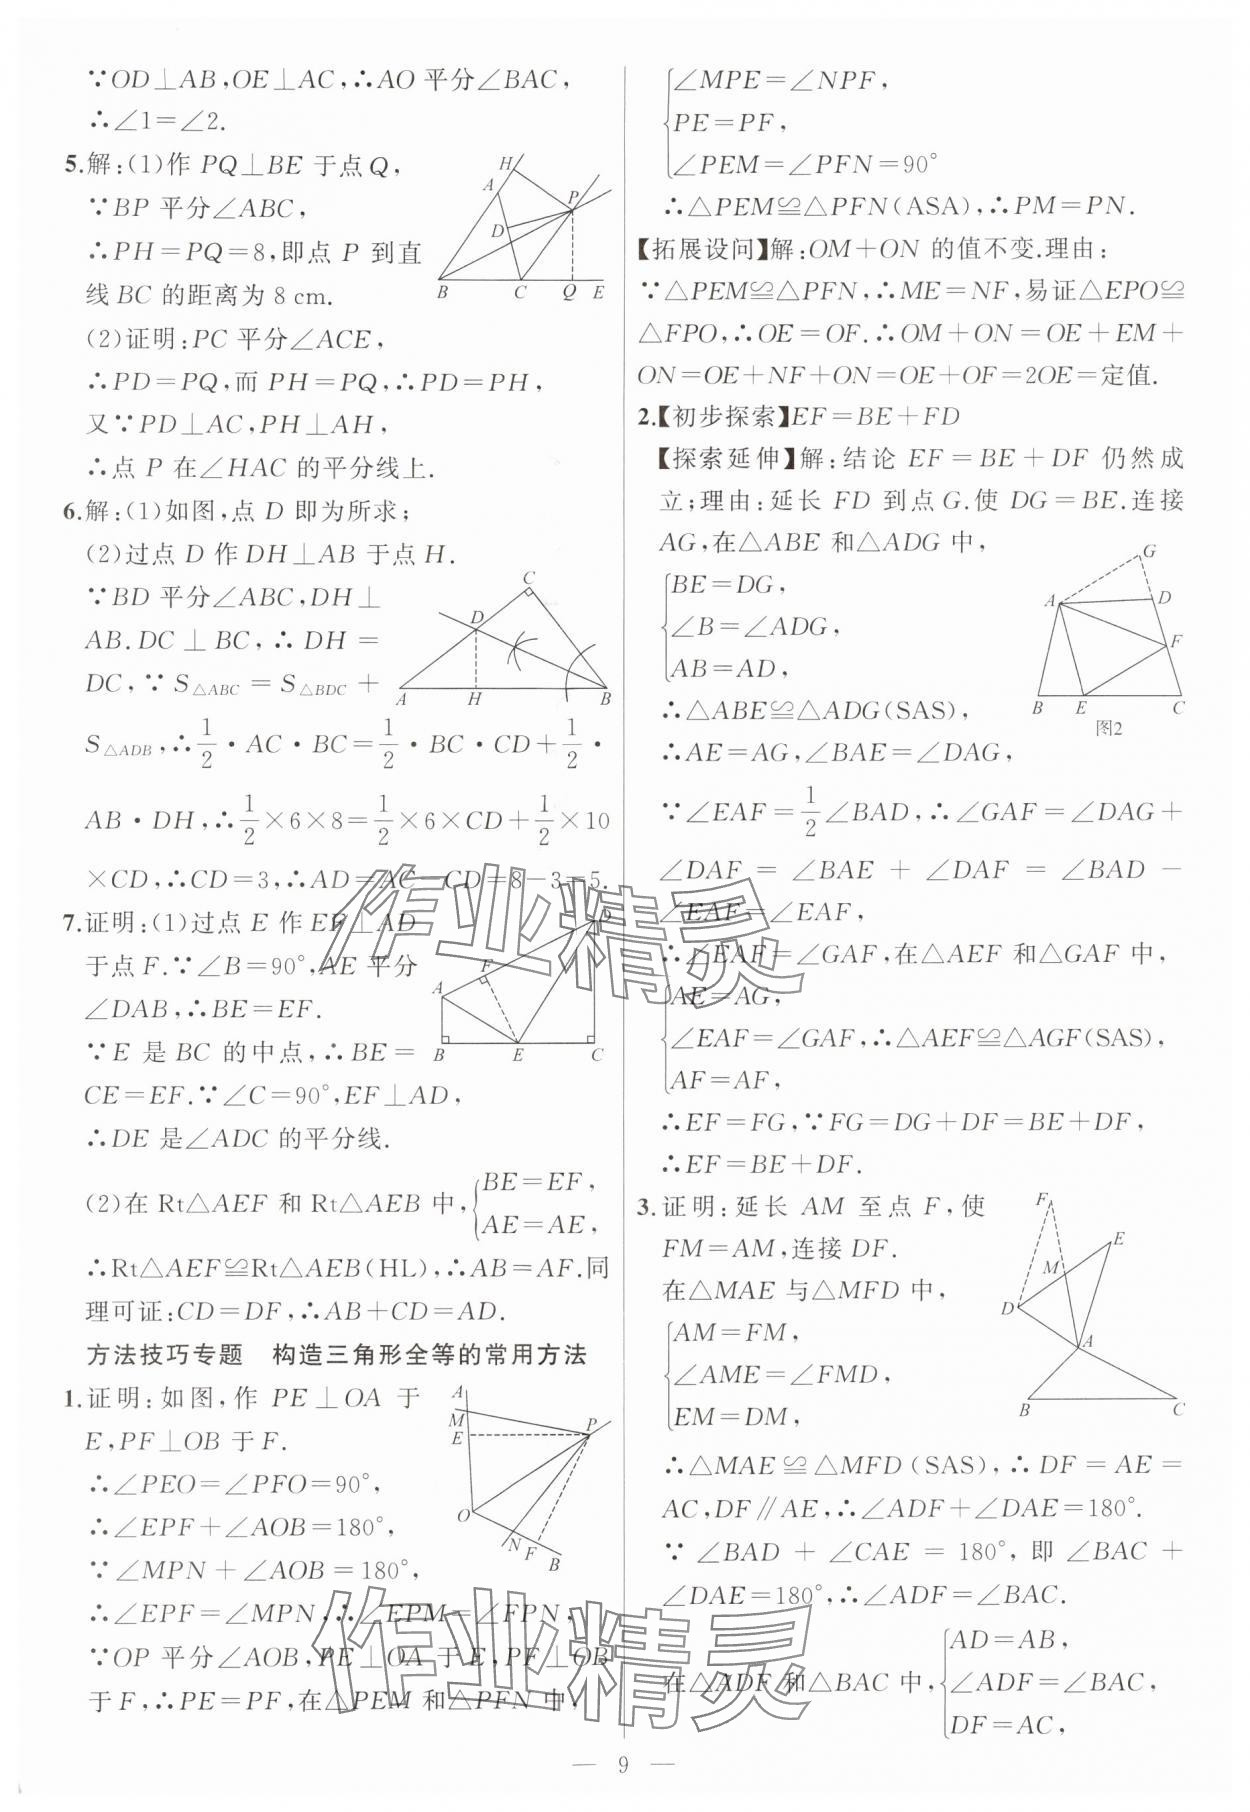 ∵OD⊥AB,OE⊥AC,∴AO平分∠BAC,
∴∠1=∠2.
5.解:(1)作 PQ⊥BE 于点Q,
∵BP平分∠ABC,
∴PH=PQ=8,即点 P 到直
线BC的距离为8 cm.
(2)证明:PC平分∠ACE,
∴PD=PQ,而 PH=PQ,∴PD=PH,
又∵PD⊥AC,PH⊥AH,
∴点 P 在∠HAC 的平分线上.
H
A
P
D
B C Q E
6.解:(1)如图,点 D 即为所求;
(2)过点 D 作 DH⊥AB 于点 H.
∵BD平分∠ABC,DH⊥
AB.DC⊥BC,∴DH=
DC,∵S△ABC=S△BDC+
S△ADB,∴1/2·AC·BC=1/2·BC·CD+1/2·
AB·DH,∴1/2×6×8=1/2×6×CD+1/2×10
×CD,∴CD=3,∴AD=AC-CD=8-3=5.
C
D
A H B
7.证明:(1)过点 E 作 EF⊥AD
于点F.∵∠B=90°,AE平分
∠DAB,∴BE=EF.
∵E 是 BC 的中点,∴BE=
CE=EF.∵∠C=90°,EF⊥AD,
∴DE是∠ADC的平分线.
D
F
A
B E C
(2)在 Rt△AEF 和 Rt△AEB 中,{BE=EF,
AE=AE,
∴Rt△AEF≌Rt△AEB(HL),∴AB=AF.同
理可证:CD=DF,∴AB+CD=AD.
方法技巧专题 构造三角形全等的常用方法
1.证明:如图,作 PE⊥OA 于
E,PF⊥OB于F.
∴∠PEO=∠PFO=90°,
∴∠EPF+∠AOB=180°,
∵∠MPN+∠AOB=180°,
∴∠EPF=∠MPN,∴∠EPM=∠FPN,
∵OP平分∠AOB,PE⊥OA于E,PF⊥OB
于F,∴PE=PF,在△PEM和△PFN中,
A
M
E
P
O
N F B
{∠MPE=∠NPF,
PE=PF,
∠PEM=∠PFN=90°
∴△PEM≌△PFN(ASA),∴PM=PN.
【拓展设问】解:OM+ON 的值不变.理由:
∵△PEM≌△PFN,∴ME=NF,易证△EPO≌
△FPO,∴OE=OF.∴OM+ON=OE+EM+
ON=OE+NF+ON=OE+OF=2OE=定值.
2.【初步探索】EF=BE+FD
【探索延伸】解:结论 EF=BE+DF 仍然成
立;理由:延长 FD 到点G.使 DG=BE.连接
AG,在△ABE 和△ADG 中,
{BE=DG,
∠B=∠ADG,
AB=AD,
∴△ABE≌△ADG(SAS),
∴AE=AG,∠BAE=∠DAG,
∵∠EAF=1/2∠BAD,∴∠GAF=∠DAG+
∠DAF=∠BAE+∠DAF=∠BAD-
∠EAF=∠EAF,
∴∠EAF=∠GAF,在△AEF 和△GAF 中,
{AE=AG,
∠EAF=∠GAF,∴△AEF≌△AGF(SAS),
AF=AF,
∴EF=FG,∵FG=DG+DF=BE+DF,
∴EF=BE+DF.
G
A D
F
B E C
图2
3.证明:延长 AM 至点 F,使
FM=AM,连接DF.
在△MAE与△MFD中,
{AM=FM,
∠AME=∠FMD,
EM=DM,
∴△MAE≌△MFD(SAS),∴DF=AE=
AC,DF∥AE,∴∠ADF+∠DAE=180°.
∵∠BAD+∠CAE=180°,即∠BAC+
∠DAE=180°,∴∠ADF=∠BAC.
在△ADF和△BAC中,{AD=AB,
∠ADF=∠BAC,
DF=AC,
F
E
M
D
A
B C
— 9 —
作业精灵
作业精灵